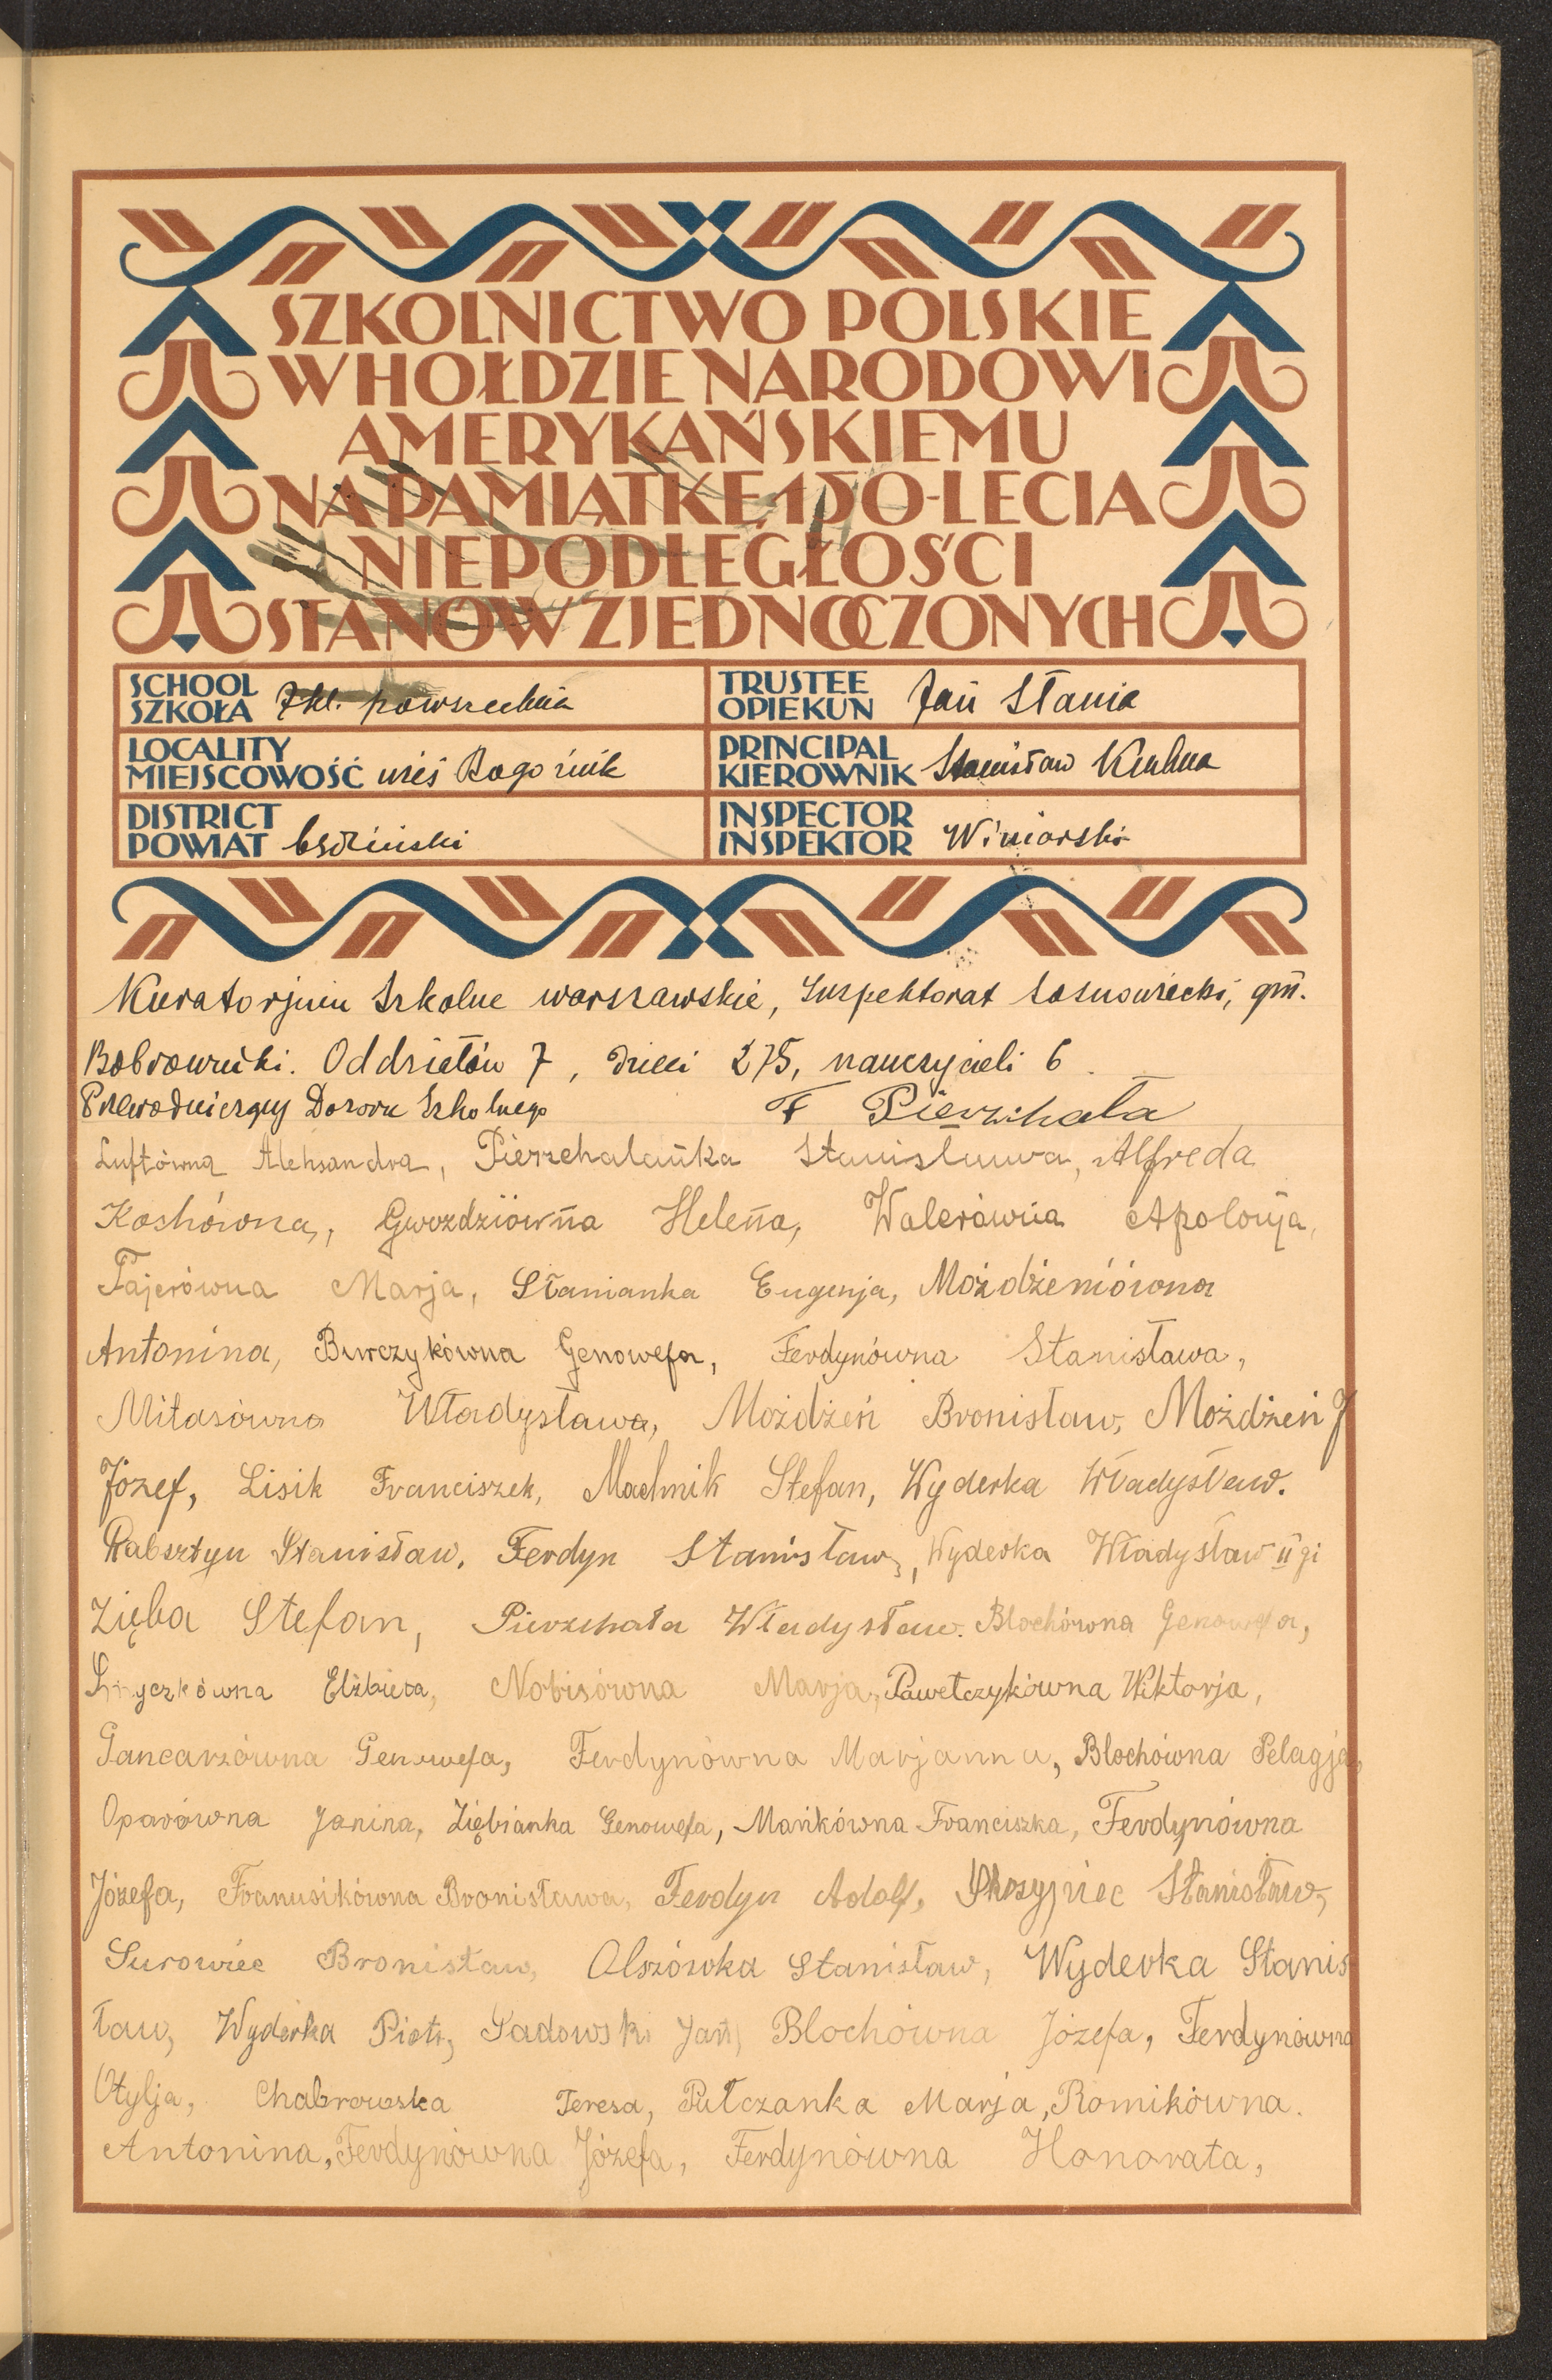 SZKOLNICTWO POLSKIE
W HOŁDZIE NARODOWI
AMERYKAŃSKIEMU
NA PAMIĄTKĘ 150-LECIA
NIEPODLEGŁOŚCI
STANÓW ZJEDNOCZONYCH
SCHOOL
SZKOŁA 7 kl. powszechna
TRUSTEE
OPIEKUN Jan Stania
LOCALITY
MIEJSCOWOŚĆ wieś Rogoźnik
PRINCIPAL
KIEROWNIK Stanisław
DISTRICT
POWIAT będziński
INSPECTOR
INSPEKTOR Winiarski
Kuratorjum Szkolne warszawskie, Inspektorat sosnowiecki, gm.
Bobrowniki. Oddziałów 7, dzieci 275, nauczycieli 6.
Przewodniczący Dozoru Szkolnego F Pierzchała
Luftówna Aleksandra, Pierzchalanka Stanisława, Alfreda
Koskówna, Gwoździówna Helena, Walerówna Apolonja,
Fajerówna Marja, Stanianka Eugenja, Możdżeniówna
Antonina, Burczykówna Genowefa, Ferdynówna Stanisława,
Mitasówna Władysława, Możdżeń Bronisław, Możdżeń J
Józef, Lisik Franciszek, Machnik Stefan, Wyderka Władysław.
Rabsztyn Stanisław, Ferdyn Stanisław, Wyderka Władysław II gi
Zięba Stefan, Pierzchała Władysław. Blochówna Genowefa,
Elżbieta, Nobisówna Marja, Pawełczykówna Wiktorja,
Gancarzówna Genowefa, Ferdynówna Marjanna, Blochówna Pelagja,
Oparówna Janina, Ziębianka Genowefa, Mańkówna Franciszka, Ferdynówna
Józefa, Franusikówna Bronisława, Ferdyn Adolf, Stanisław,
Surowiec Bronisław, Olszówka Stanisław, Wyderka Stanis
ław, Wyderka Piotr, Sadowski Jan, Blochówna Józefa, Ferdynówna
Otylja, Chabrowska Teresa, Pułczanka Marja, Romikówna.
Antonina, Ferdynówna Józefa, Ferdynówna Honorata,